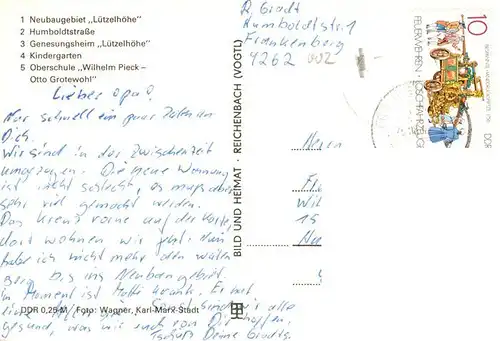 1 Neubaugebiet „Lützelhöhe“
2 Humboldtstraße
3 Genesungsheim „Lützelhöhe“
4 Kindergarten
5 Oberschule „Wilhelm Pieck -
Otto Grotewohl“
Lieber Opa!
Nur schnell ein paar Zeilen an
Dich.
Wir sind in der Zwischenzeit
umgezogen. Die neue Wohnung
ist nicht schlecht, es muß aber
sehr viel gemacht werden.
Das Kreuz vorne auf der Karte,
dort wohnen wir jetzt. Nun
habe ich nicht mehr den
Berg bis ins Neubaugebiet.
Im Moment ist Mutti krank. Er hat
eine Sonst sind wir alle
gesund, was wir auch von Dir hoffen.
Tschüß Deine
DDR 0,25 M Foto: Wagner, Karl-Marx-Stadt
BILD UND HEIMAT · REICHENBACH (VOGTL)
R. Gradt
Humboldtstr. 1
Frankenberg
9262
Herrn
Wil
15
10
FEUERWEHREN - LÖSCHFAHRZEUGE
DDR